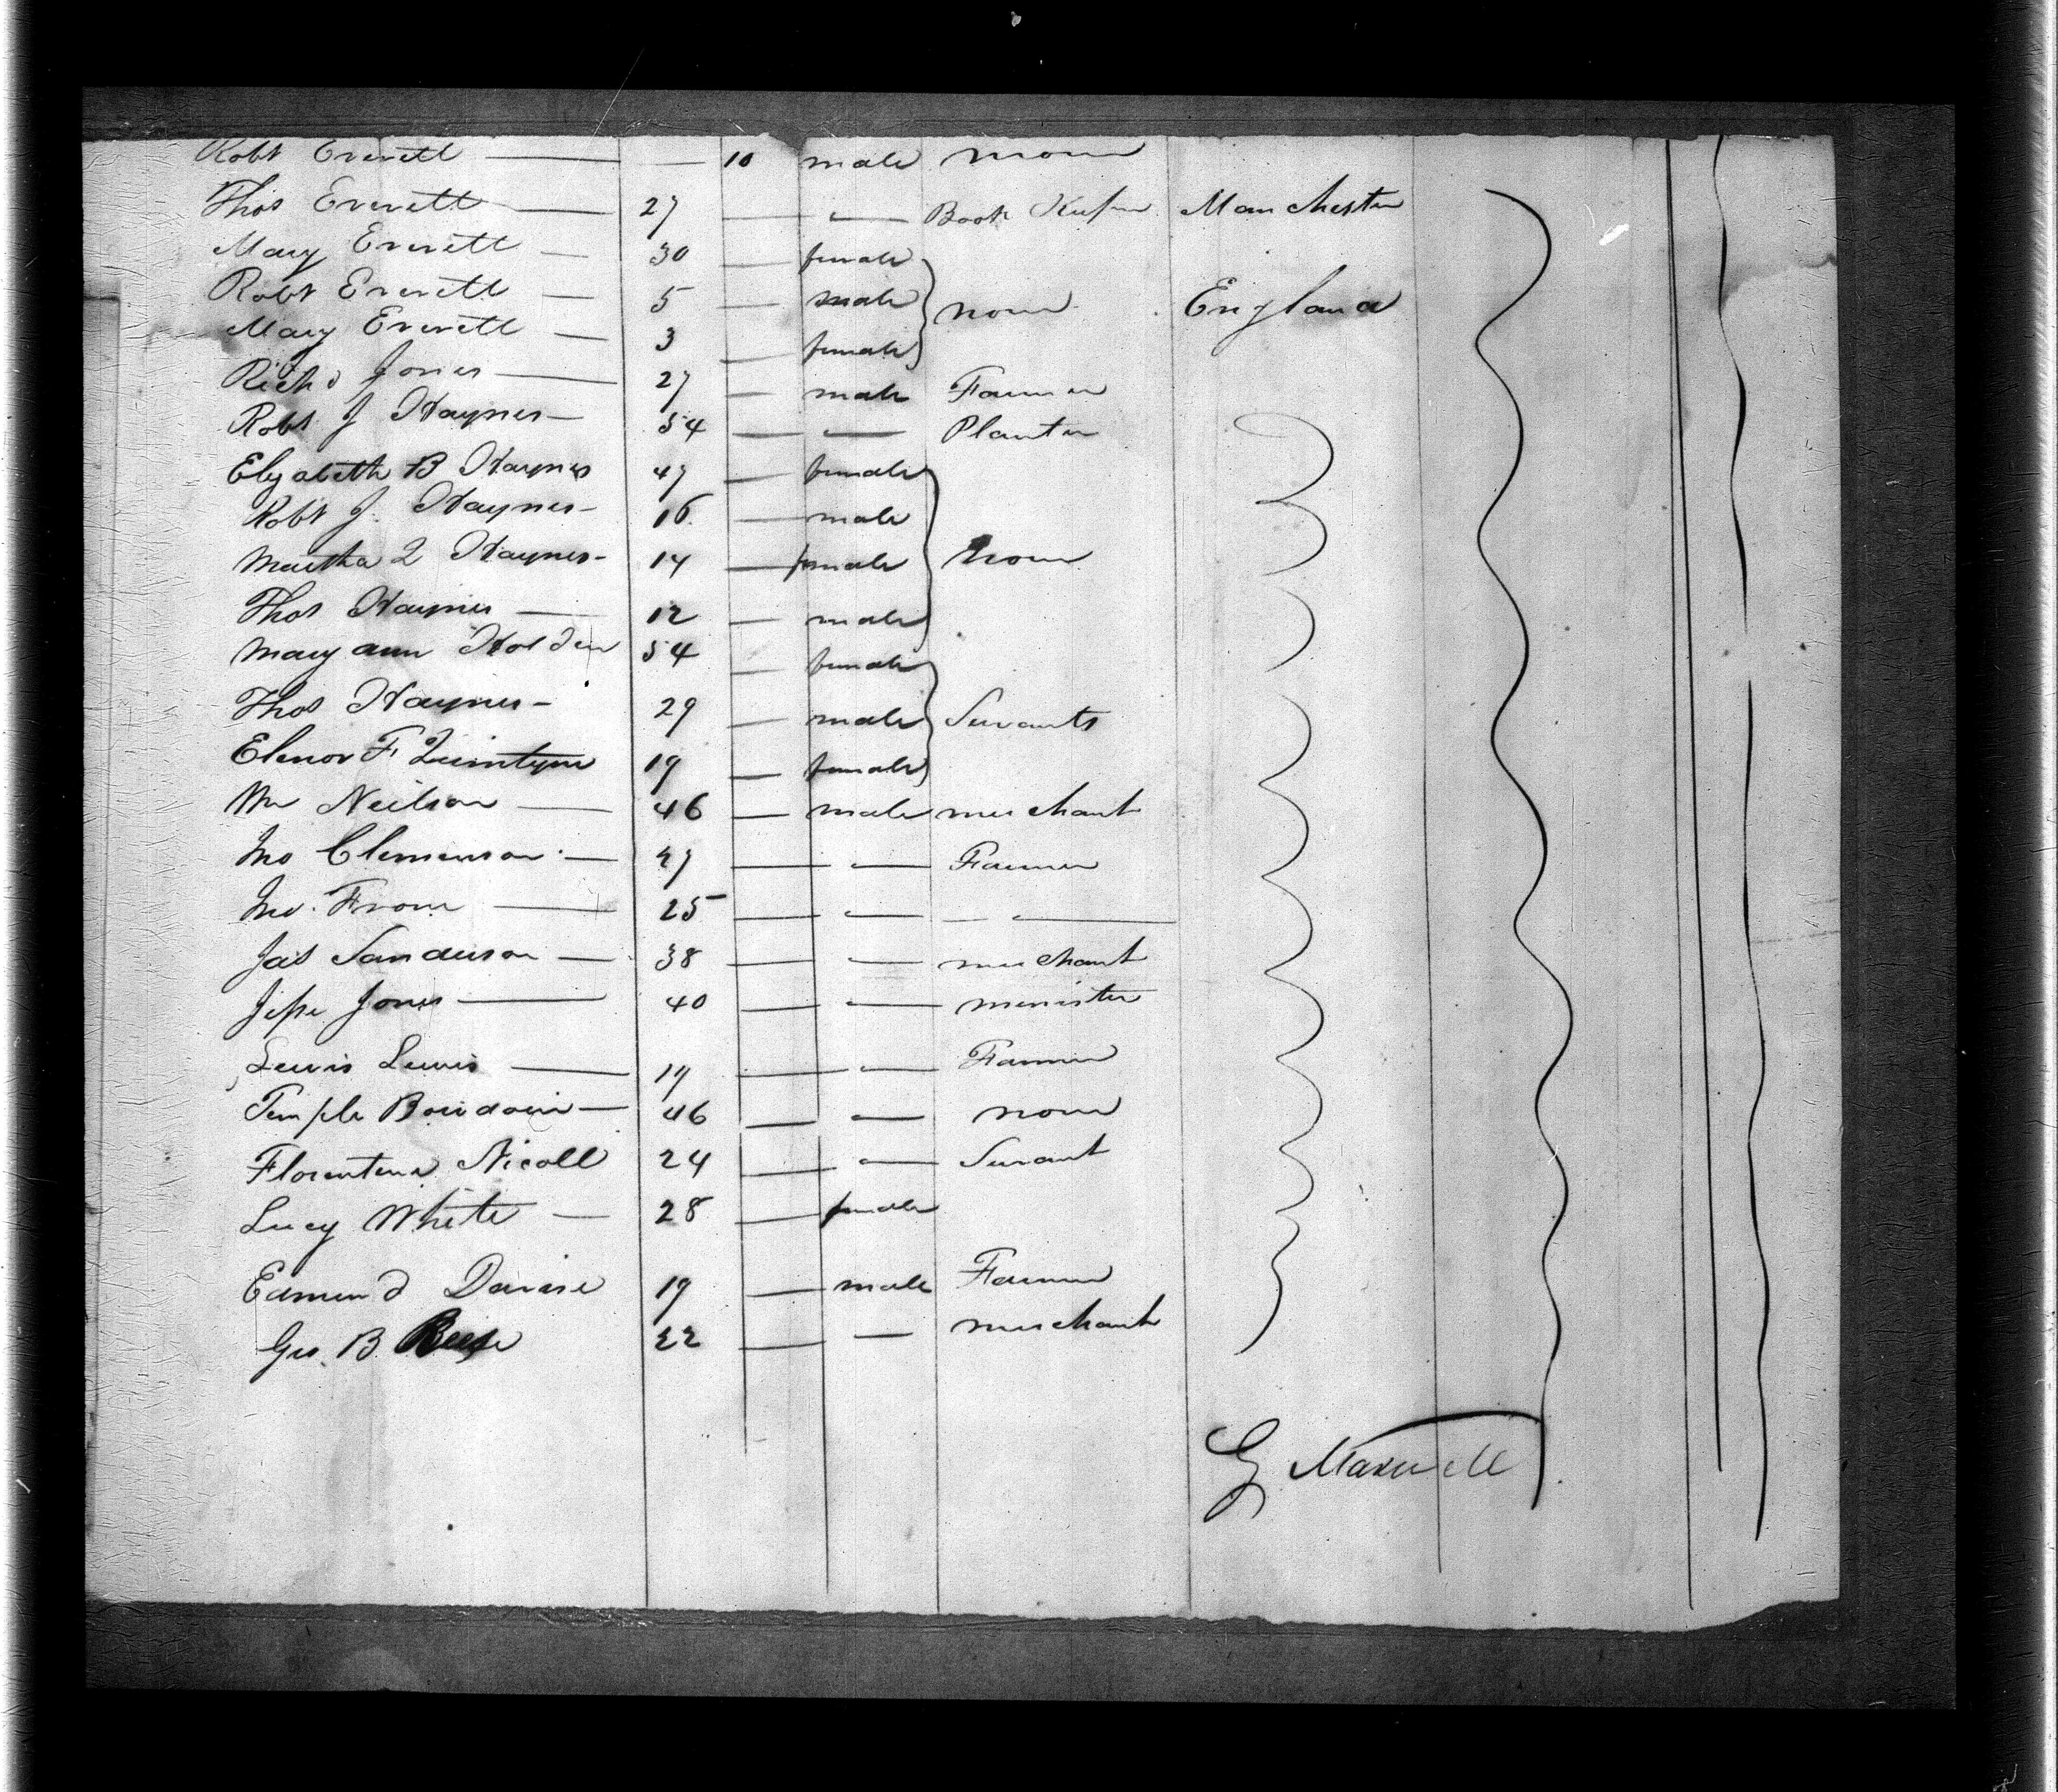 Robt Everett — — 10 male none
Thos Everett — 27 — — Book Keeper Manchester
Mary Everett — 30 — female
Robt Everett — 5 — male none England
Mary Everett — 3 — female
Richd Jones — 27 — male Farmer
Robt J Haynes — 54 — — Planter
Elizabeth B Haynes 47 — female
Robt J. Haynes - 16 — male
Martha Q Haynes - 14 — female none
Thos Haynes — 12 — male
Mary ann Holden 54 — female
Thos Haynes - 29 — male Servants
Elenor F Quintyne 19 — female
Wm Neilson — 46 — male merchant
Jno Clemenson — 27 — — Farmer
Jno. From — 25 — — — —
Jas Sanderson — 38 — — merchant
Jesse Jones — 40 — — minister
Lewis Lewis — 19 — — Farmer
Temple Bowdoin — 46 — — none
Florentena Nicoll 24 — — Servant
Lucy White — 28 — female
Edmund 19 — male Farmer
Geo. B. 22 — — merchant
G Maxwell